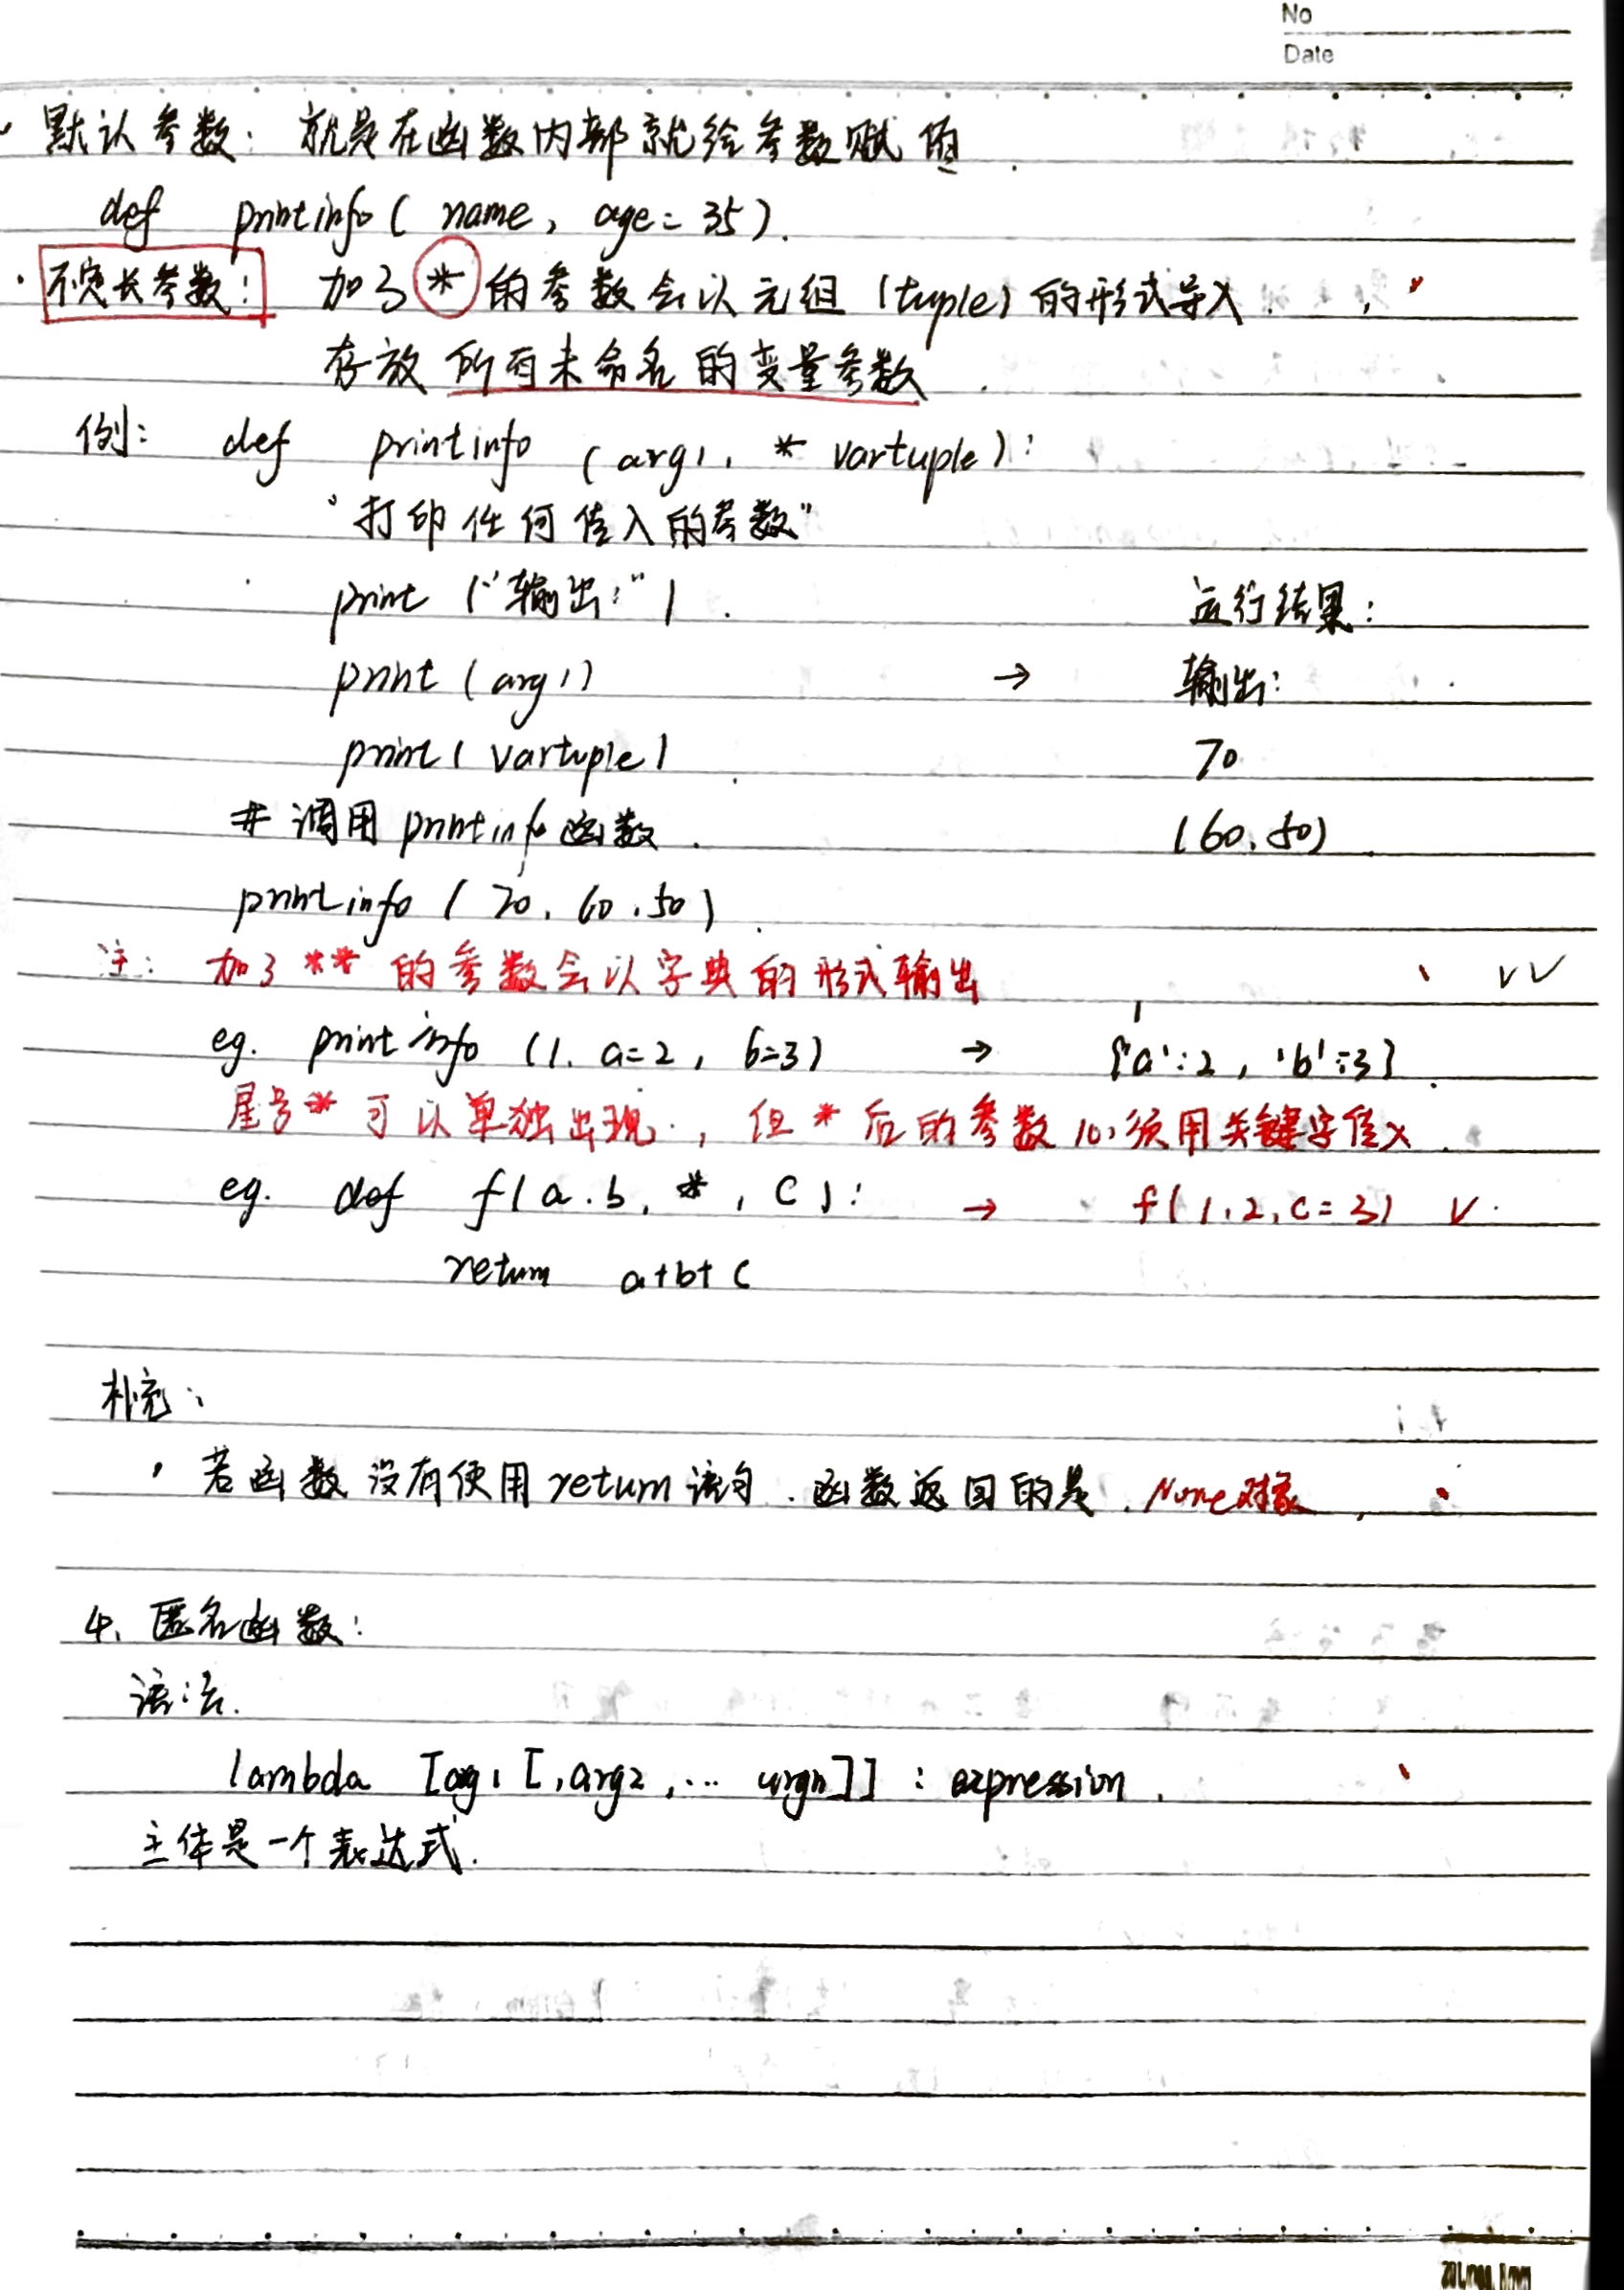 No
Date
· 默认参数：就是在函数内部就给参数赋值.
def printinfo ( name, age = 35).
· 不定长参数： 加了 * 的参数会以元组 (tuple) 的形式导入.
存放所有未命名的变量参数.
例： def printinfo (arg1, * vartuple):
"打印任何传入的参数"
print ("输出:") 运行结果:
print (arg1) → 输出:
print( vartuple) 70
# 调用 printinfo 函数. (60, 50)
printinfo ( 70, 60, 50)
注: 加了 ** 的参数会以字典的形式输出 ✓✓
eg. printinfo (1, a=2, b=3) → {'a':2, 'b':3}
星号 * 可以单独出现, 但 * 后的参数必须用关键字传入.
eg. def f( a, b, *, c ): → f( 1, 2, c = 3) ✓
return a+b+c
补充:
· 若函数没有使用 return 语句, 函数返回的是 None对象
4. 匿名函数:
语法.
lambda [arg1 [,arg2, ... argn]] : expression.
主体是一个表达式.